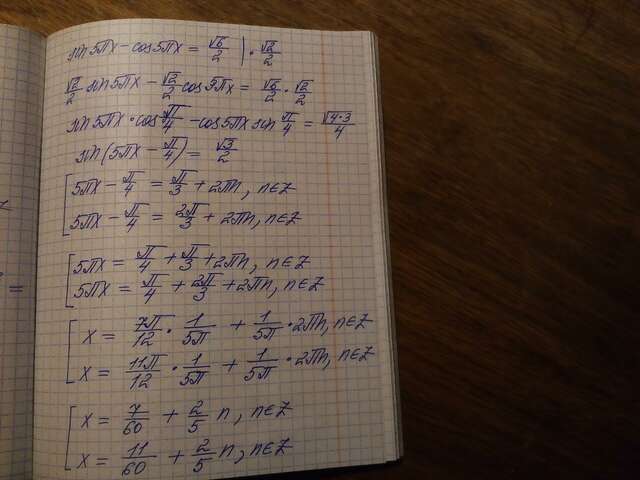 sin 5πx − cos 5πx = √6/2 | · √2/2
√2/2 sin 5πx − √2/2 cos 5πx = √6/2 · √2/2
sin 5πx · cos π/4 − cos 5πx sin π/4 = √(4·3)/4
sin(5πx − π/4) = √3/2
[ 5πx − π/4 = π/3 + 2πn, n∈Z
5πx − π/4 = 2π/3 + 2πn, n∈Z
[ 5πx = π/4 + π/3 + 2πn, n∈Z
5πx = π/4 + 2π/3 + 2πn, n∈Z
[ x = 7π/12 · 1/5π + 1/5π · 2πn, n∈Z
x = 11π/12 · 1/5π + 1/5π · 2πn, n∈Z
[ x = 7/60 + 2/5 n, n∈Z
x = 11/60 + 2/5 n, n∈Z